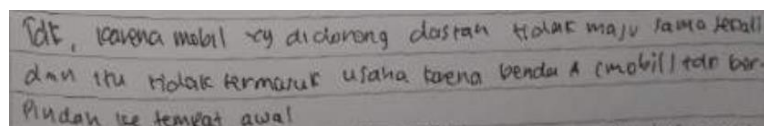 Tdk, karena mobil yg didorong dastan tidak maju sama sekali
dan itu tidak termasuk usaha karena benda A (mobil) tdk ber-
pindah ke tempat awal